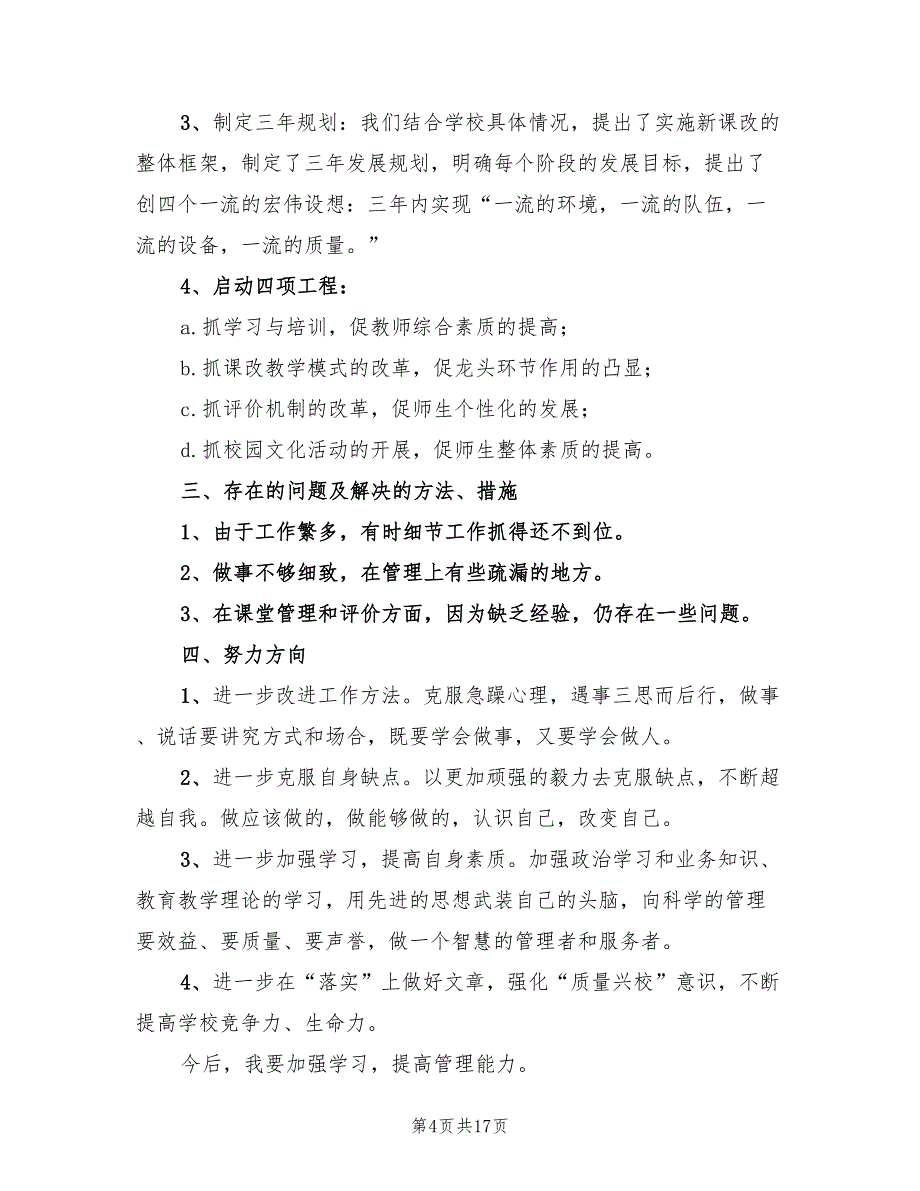 3、制定三年规划：我们结合学校具体情况，提出了实施新课改的
整体框架，制定了三年发展规划，明确每个阶段的发展目标，提出了
创四个一流的宏伟设想：三年内实现“一流的环境，一流的队伍，一
流的设备，一流的质量。”
4、启动四项工程：
a.抓学习与培训，促教师综合素质的提高；
b.抓课改教学模式的改革，促龙头环节作用的凸显；
c.抓评价机制的改革，促师生个性化的发展；
d.抓校园文化活动的开展，促师生整体素质的提高。
三、存在的问题及解决的方法、措施
1、由于工作繁多，有时细节工作抓得还不到位。
2、做事不够细致，在管理上有些疏漏的地方。
3、在课堂管理和评价方面，因为缺乏经验，仍存在一些问题。
四、努力方向
1、进一步改进工作方法。克服急躁心理，遇事三思而后行，做事
、说话要讲究方式和场合，既要学会做事，又要学会做人。
2、进一步克服自身缺点。以更加顽强的毅力去克服缺点，不断超
越自我。做应该做的，做能够做的，认识自己，改变自己。
3、进一步加强学习，提高自身素质。加强政治学习和业务知识、
教育教学理论的学习，用先进的思想武装自己的头脑，向科学的管理
要效益、要质量、要声誉，做一个智慧的管理者和服务者。
4、进一步在“落实”上做好文章，强化“质量兴校”意识，不断
提高学校竞争力、生命力。
今后，我要加强学习，提高管理能力。
第4页共17页